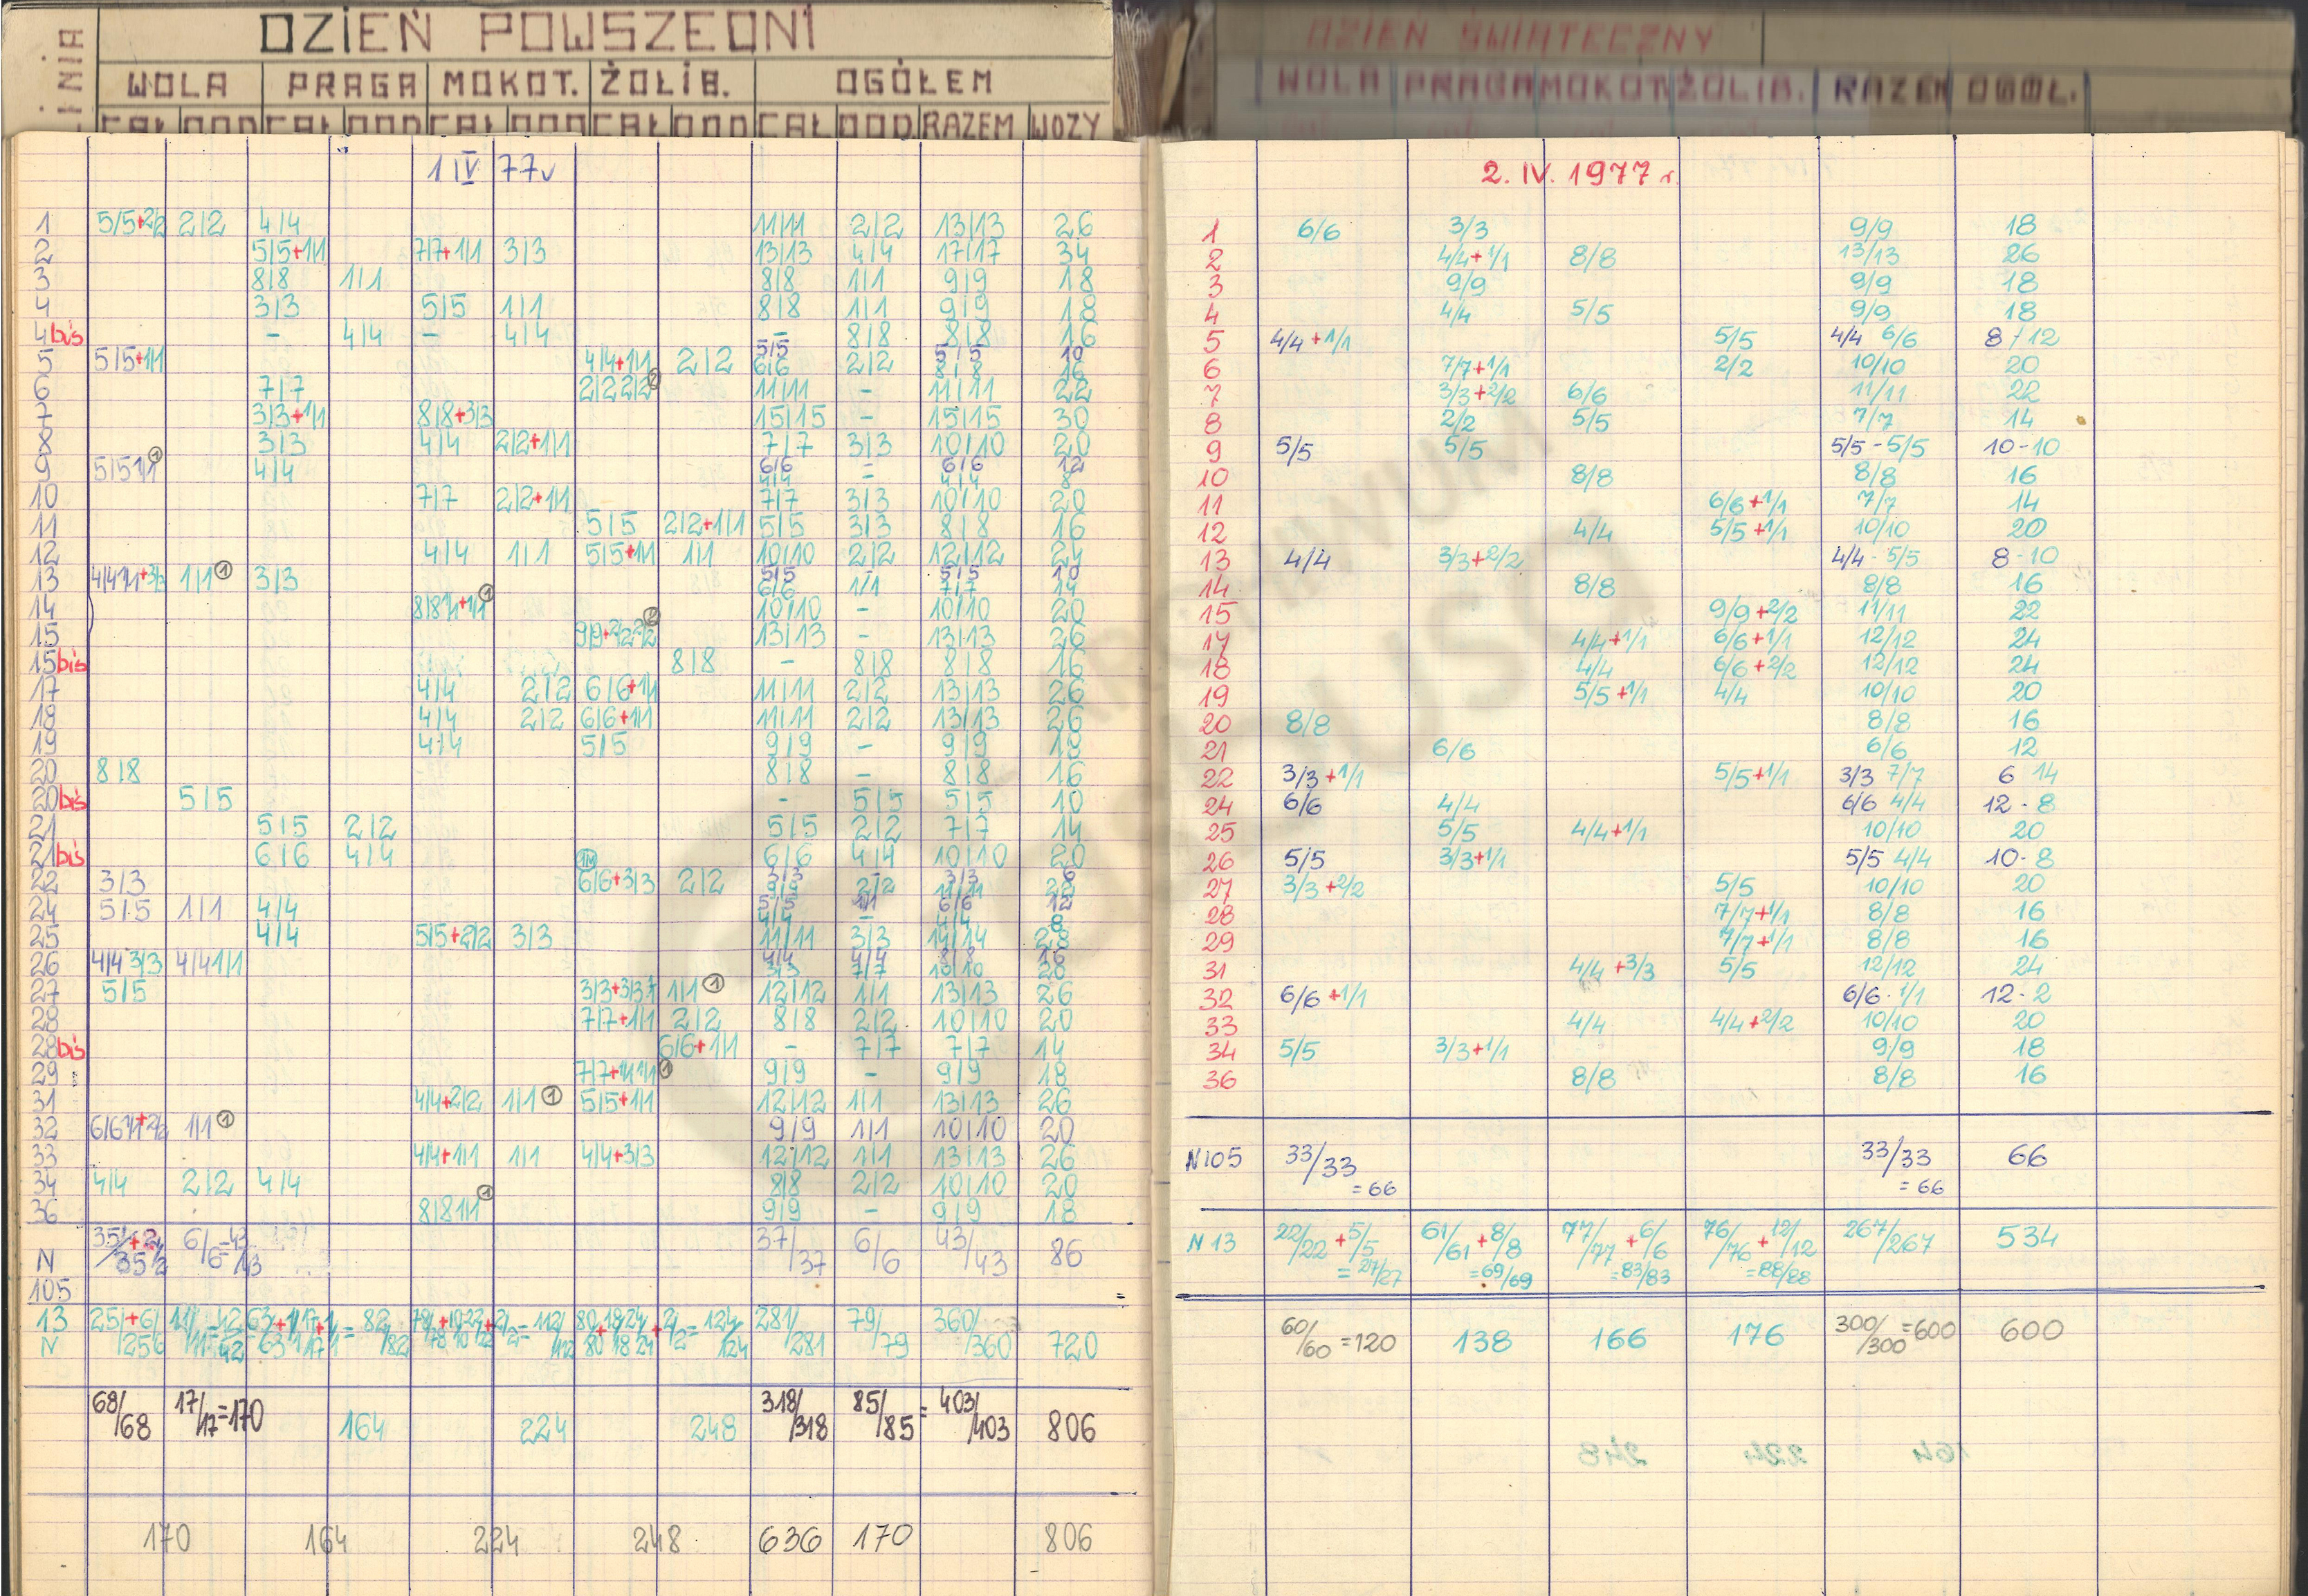 DZIEŃ POWSZEDNI
WOLA PRAGA MOKOT. ŻOLIB. OGÓŁEM
CAŁ DOD CAŁ DOD CAŁ DOD CAŁ DOD CAŁ DOD RAZEM WOZY
1 IV 77r
1 5/5+2/2 2/2 4/4 11/11 2/2 13/13 26
2 5/5+1/1 7/7+1/1 3/3 13/13 4/4 17/17 34
3 8/8 1/1 8/8 1/1 9/9 18
4 3/3 5/5 1/1 8/8 1/1 9/9 18
4bis - 4/4 - 4/4 - 8/8 8/8 16
5 5/5+1/1 4/4+1/1 2/2 5/5 6/6 2/2 5/5 8/8 10 16
6 7/7 2/2 2/2 2 11/11 - 11/11 22
7 3/3+1/1 8/8+3/3 15/15 - 15/15 30
8 3/3 4/4 2/2+1/1 7/7 3/3 10/10 20
9 5/5 1/1 1 4/4 6/6 4/4 = 6/6 4/4 12 8
10 7/7 2/2+1/1 7/7 3/3 10/10 20
11 5/5 2/2+1/1 5/5 3/3 8/8 16
12 4/4 1/1 5/5+1/1 1/1 10/10 2/2 12/12 24
13 4/4 1/1+3/3 1/1 1 3/3 5/5 6/6 1/1 5/5 7/7 10 14
14 8/8 1/1+1/1 1 10/10 - 10/10 20
15 9/9+2/2 2/2 2 13/13 - 13/13 26
15bis 8/8 - 8/8 8/8 16
17 4/4 2/2 6/6+1/1 11/11 2/2 13/13 26
18 4/4 2/2 6/6+1/1 11/11 2/2 13/13 26
19 4/4 5/5 9/9 - 9/9 18
20 8/8 8/8 - 8/8 16
20bis 5/5 - 5/5 5/5 10
21 5/5 2/2 5/5 2/2 7/7 14
21bis 6/6 4/4 1M 6/6 4/4 10/10 20
22 3/3 6/6+3/3 2/2 3/3 9/9 2/2 3/3 11/11 6 22
24 5/5 1/1 4/4 5/5 4/4 1/1 - 6/6 4/4 12 8
25 4/4 5/5+2/2 3/3 11/11 3/3 14/14 28
26 4/4 3/3 4/4 1/1 4/4 3/3 4/4 7/7 8/8 10/10 16 20
27 5/5 3/3+3/3 1/1 1 12/12 1/1 13/13 26
28 7/7+1/1 2/2 8/8 2/2 10/10 20
28bis 6/6+1/1 - 7/7 7/7 14
29 7/7+1/1 1/1 1 9/9 - 9/9 18
31 4/4+2/2 1/1 1 5/5+1/1 12/12 1/1 13/13 26
32 6/6 1/1+2/2 1/1 1 9/9 1/1 10/10 20
33 4/4+1/1 1/1 4/4+3/3 12/12 1/1 13/13 26
34 4/4 2/2 4/4 8/8 2/2 10/10 20
36 8/8 1/1 1 9/9 - 9/9 18
N 105 35/35+2/2 6/6=43/43 37/37 6/6 43/43 86
13 N 281/281 79/79 360/360 720
68/68 17/17=170 164 224 248 318/318 85/85 = 403/403 806
170 164 224 248 636 170 806
DZIEŃ ŚWIĄTECZNY
WOLA PRAGA MOKOT. ŻOLIB. RAZEM OGÓŁ.
2. IV. 1977 r.
1 6/6 3/3 9/9 18
2 4/4+1/1 8/8 13/13 26
3 9/9 9/9 18
4 4/4 5/5 9/9 18
5 4/4+1/1 5/5 4/4 6/6 8/12
6 7/7+1/1 2/2 10/10 20
7 3/3+2/2 6/6 11/11 22
8 2/2 5/5 7/7 14
9 5/5 5/5 5/5-5/5 10-10
10 8/8 8/8 16
11 6/6+1/1 7/7 14
12 4/4 5/5+1/1 10/10 20
13 4/4 3/3+2/2 4/4-5/5 8-10
14 8/8 8/8 16
15 9/9+2/2 11/11 22
17 4/4+1/1 6/6+1/1 12/12 24
18 4/4 6/6+2/2 12/12 24
19 5/5+1/1 4/4 10/10 20
20 8/8 8/8 16
21 6/6 6/6 12
22 3/3+1/1 5/5+1/1 3/3 7/7 6 14
24 6/6 4/4 6/6 4/4 12-8
25 5/5 4/4+1/1 10/10 20
26 5/5 3/3+1/1 5/5 4/4 10-8
27 3/3+2/2 5/5 10/10 20
28 7/7+1/1 8/8 16
29 7/7+1/1 8/8 16
31 4/4+3/3 5/5 12/12 24
32 6/6+1/1 6/6-1/1 12-2
33 4/4 4/4+2/2 10/10 20
34 5/5 3/3+1/1 9/9 18
36 8/8 8/8 16
N105 33/33 33/33 66
=66 =66
N13 22/22+5/5 61/61+8/8 77/77+6/6 76/76+12/12 267/267 534
=27/27 =69/69 =83/83 =88/88
60/60=120 138 166 176 300/300=600 600